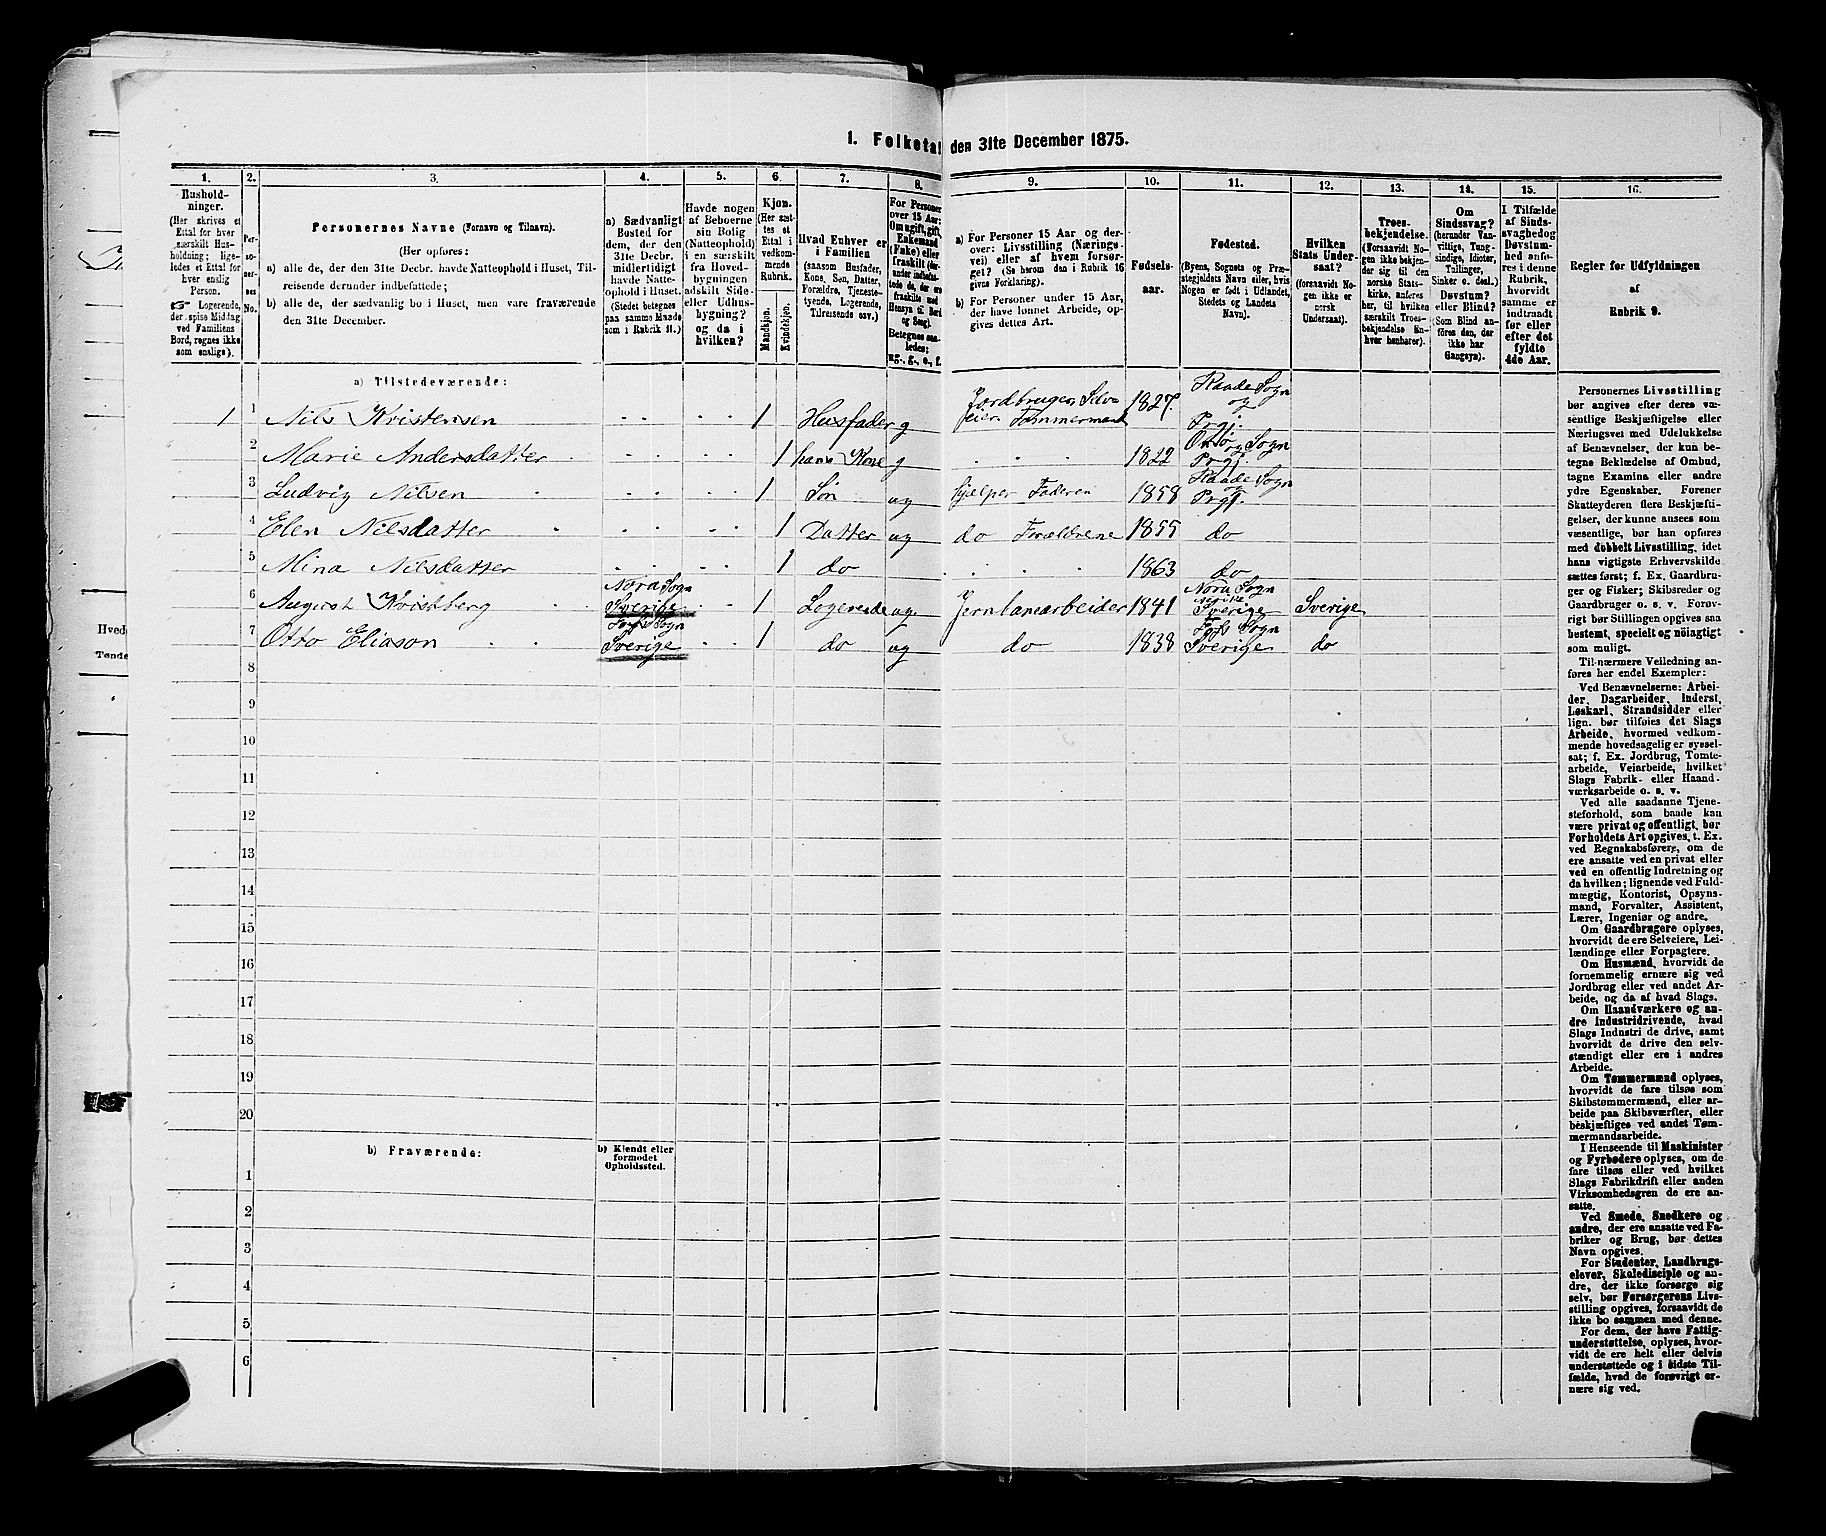 1. Folketal den 31te December 1875.
1.
Hushold-
ninger.
(Her skrives et
Ettal for hver
særskilt Hus-
holdning; lige-
ledes et Ettal for
hver enslig
Person.
Logerende,
der spise Middag
ved Familiens
Bord, regnes ikke
som enslige).
2.
Per-
so-
ner-
nes
No.
3.
Personernes Navne (Fornavn og Tilnavn).
(Her opføres:
a) alle de, der den 31te Decbr. havde Natteophold i Huset, Til-
reisende derunder indbefattede;
b) alle de, der sædvanlig bo i Huset, men vare fraværende
den 31te December.
4.
a) Sædvanligt
Bosted for
dem, der den
31te Decbr.
midlertidigt
havde Natte-
ophold i Huset.
(Stedet betegnes
paa samme Maade
som i Rubrik 11.)
5.
Havde nogen
af Beboerne
sin Bolig
(Natteophold)
i en særskilt
fra Hoved-
bygningen
adskilt Side-
eller Udhus-
bygning?
og da i
hvilken?
6.
Kjøn.
(Her sæt-
tes et
Ettal i
vedkom-
mende
Rubrik.
Mandkjøn.
Kvindekjøn.
7.
Hvad Enhver er
i Familien
(saasom Husfader,
Kone, Søn, Datter,
Forældre, Tjeneste-
tyende, Logerende,
Tilreisende osv.)
8.
For Personer
over 15 Aar:
Om ugift, gift,
Enkemand
(Enke) eller
fraskilt
Betegnes saa-
ledes:
ug., g., e., f.
9.
a) For Personer 15 Aar og der-
over: Livsstilling (Nærings-
vei) eller af hvem forsør-
get? (Se herom den i Rubrik 16
givne Forklaring).
b) For Personer under 15 Aar,
der have lønnet Arbeide, op-
gives dettes Art.
10.
Fødsels-
aar.
11.
Fødested.
(Byens, Sognets og Præ-
stegjeldets Navn eller, hvis
Nogen er født i Udlandet,
Stedets og Landets
Navn).
12.
Hvilken
Stats Under-
saat?
(forsaavidt No-
gen ikke er
norsk
Undersaat).
13.
Troes-
bekjendelse.
(Forsaavidt No-
gen ikke bekjen-
der sig til den
norske Stats-
kirke, anføres
her, til hvilken
særskilt Troes-
bekjendelse En-
hver henhører).
14.
Om
Sindssvag?
(herunder Van-
vittige, Tung-
sindige, Idioter,
Tullinger,
Sinker o. desl.)
Døvstum?
eller Blind?
(Som Blind an-
føres den, der
ikke har
Gangsyn).
15.
I Tilfælde
af Sinds-
svaghed og
Døvstum-
hed anfø-
res i denne
Rubrik,
hvorvidt
samme er
indtraadt
før eller
efter det
fyldte
4de Aar.
16.
Regler før Udfyldningen
af
Rubrik 9.
a) Tilstedeværende:
1 1 Nils Kristensen 1 Husfader g Jordbruger, Selv-
eier, Tømmermand 1827. Raade Sogn
og
Prgj.
2 Marie Andersdatter 1 hans Kone g 1822 Sogn
Prgj.
3 Ludvig Nilsen 1 Søn ug hjælper Faderen 1858 Raade Sogn
og
Prgj.
4 Elen Nilsdatter 1 Datter ug do Forældrene 1855 do
5 Mina Nilsdatter 1 do 1863 do
6 August Kvistberg Nora Sogn
Sverige 1 Logerende ug Jernbanearbeider 1841 Nora Sogn
Sverige Sverige
7 Otto Eliason Sogn
Sverige 1 do ug do 1838 Sogn
Sverige do
8
9
10
11
12
13
14
15
16
17
18
19
20
b) Fraværende:
b) Kjendt eller
formodet
Opholdssted.
1
2
3
4
5
6
Personernes Livsstilling
bør angives efter deres væ-
sentlige Beskjæftigelse eller
Næringsvei med Udelukkelse
af Benævnelser, der kun be-
tegne Beklædelse af Ombud,
tagne Examina eller andre
ydre Egenskaber. Forener
Skatteyderen flere Beskjæfti-
gelser, der kunne ansees som
væsentlige, bør han opføres
med dobbelt Livsstilling, idet
hans vigtigste Erhvervskilde
sættes først; f. Ex. Gaardbru-
ger og Fisker; Skibsreder og
Gaardbruger o. s. v. Forøv-
rigt bør Stillingen opgives saa
bestemt, specielt og nøiagtigt
som muligt.
Til nærmere Veiledning an-
føres her endel Exempler:
Ved Benævnelserne: Arbei-
der, Dagarbeider, Inderst,
Løskarl, Strandsidder eller
lign. bør tilføies det Slags
Arbeide, hvormed vedkom-
mende hovedsagelig er syssel-
sat; f. Ex. Jordbrug, Tomte-
arbeide, Veiarbeide, hvilket
Slags Fabrik- eller Haand-
værksarbeide o. s. v.
Ved alle saadanne Tjene-
steforhold, som baade kan
være privat og offentligt, bør
Forholdets Art opgives, t. Ex.
ved Regnskabsførere, om de
ere ansatte ved en privat eller
ved en offentlig Indretning og
da hvilken; lignende ved Fuld-
mægtig, Kontorist, Opsyns-
mand, Forvalter, Assistent,
Lærer, Ingeniør og andre.
Om Gaardbrugere oplyses,
hvorvidt de ere Selveiere, Lei-
lændinge eller Forpagtere.
Om Husmænd, hvorvidt de
fornemmelig ernære sig ved
Jordbrug eller ved andet Ar-
beide, og da af hvad Slags.
Om Haandværkere og an-
dre Industridrivende, hvad
Slags Industri de drive, samt
hvorvidt de drive den selv-
stændigt eller ere i andres
Arbeide.
Om Tømmermænd oplyses,
hvorvidt de fare tilsøs som
Skibstømmermænd, eller ar-
beide paa Skibsværfter, eller
beskjæftiges ved andet Tøm-
mermandsarbeide.
I Henseende til Maskinister
og Fyrbødere oplyses, om de
fare tilsøs eller ved hvilket
Slags Fabrikdrift eller anden
Virksomhedsgren de ere an-
satte.
Ved Smede, Snedkere og
andre, der ere ansatte ved Fa-
briker og Brug, bør dettes
Navn opgives.
For Studenter, Landbrugs-
elever, Skoledisciple og an-
dre, der ikke forsørge sig
selv, bør Forsørgerens Livs-
stilling opgives, forsaavidt de
ikke bo sammen med denne.
For dem, der have Fattig-
understøttelse, oplyses, hvor-
vidt de ere helt eller delvis
understøttede og i sidste Til-
fælde, hvad de forøvrigt er-
nære sig ved.
Hvede
Tønder